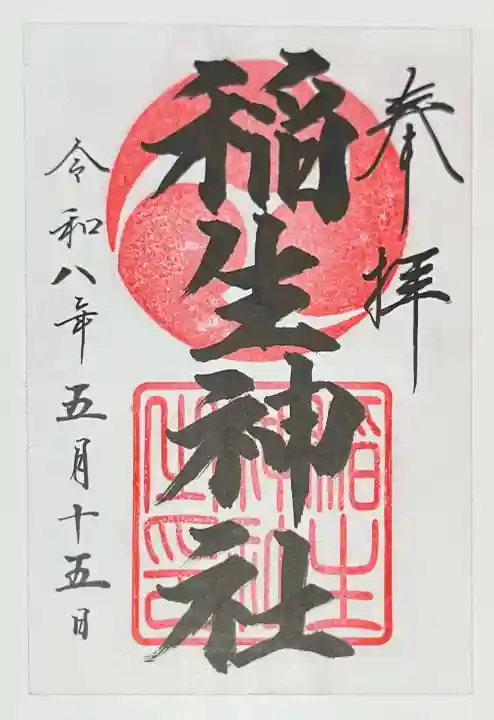 奉拝
稲生神社
稲生
神社
之印
令和八年五月十五日